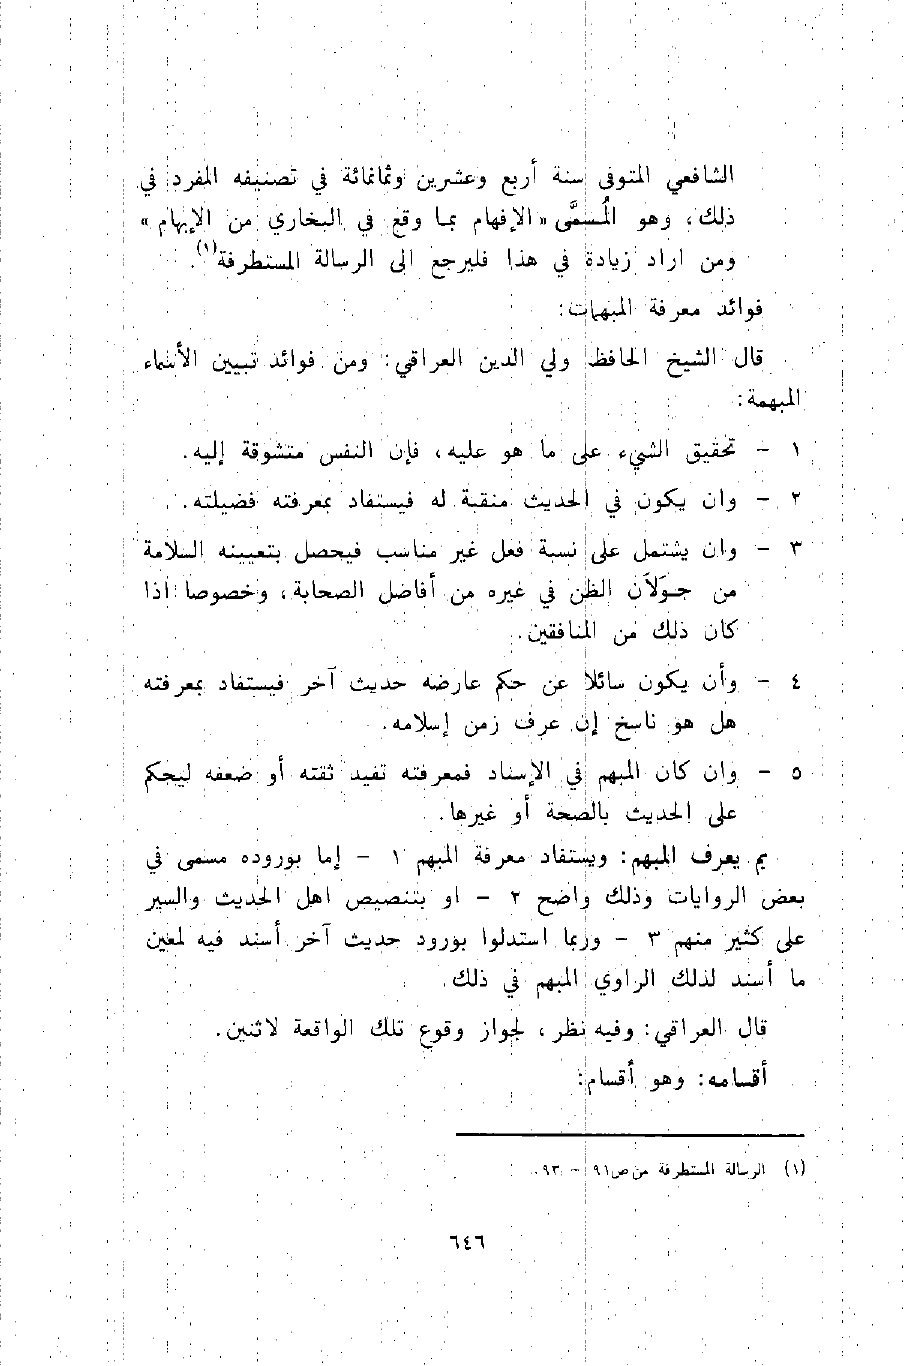 الشافعي المتوفى سنة أربع وعشرين وثمانمائة في تصنيفه المفرد في
ذلك، وهو المُسمَّى «الإفهام بما وقع في البخاري من الإبهام»
ومن اراد زيادة في هذا فليرجع الى الرسالة المستطرفة(١).
فوائد معرفة المبهمات:
قال الشيخ الحافظ ولي الدين العراقي: ومن فوائد تبيين الأسماء
المبهمة:
١ - تحقيق الشيء على ما هو عليه، فإن النفس متشوقة إليه.
٢ - وان يكون في الحديث منقبة له فيستفاد بمعرفته فضيلته.
٣ - وان يشتمل على نسبة فعل غير مناسب فيحصل بتعيينه السلامة
من جَوَلاَن الظن في غيره من أفاضل الصحابة، وخصوصا اذا
كان ذلك من المنافقين.
٤ - وأن يكون سائلا عن حكم عارضه حديث آخر فيستفاد بمعرفته
هل هو ناسخ إن عرف زمن إسلامه.
٥ - وان كان المبهم في الإسناد فمعرفته تفيد ثقته أو ضعفه ليحكم
على الحديث بالصحة أو غيرها.
بم يعرف المبهم: ويستفاد معرفة المبهم ١ - إما بوروده مسمى في
بعض الروايات وذلك واضح ٢ - او بتنصيص اهل الحديث والسير
على كثير منهم ٣ - وربما استدلوا بورود حديث آخر أسند فيه لمعين
ما أسند لذلك الراوي المبهم في ذلك.
قال العراقي: وفيه نظر، لجواز وقوع تلك الواقعة لاثنين.
أقسامه: وهو أقسام:
(١) الرسالة المستطرفة من ص٩١ - ٩٣.
٦٤٦